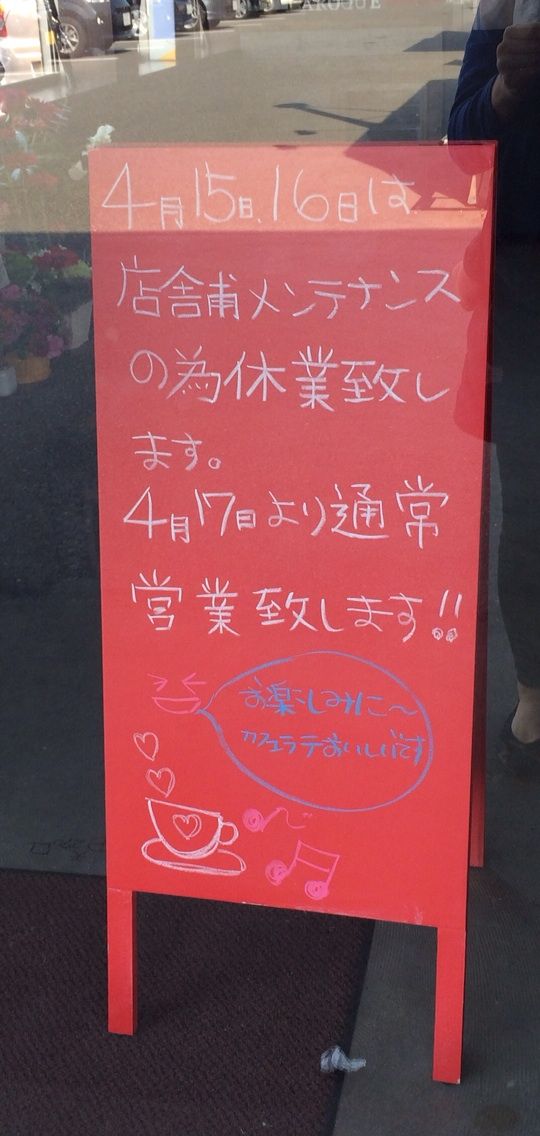 4月15日.16日は
店舎甫メンテナンス
の為休業致し
ます。
4月17日より通常
営業致します!!
お楽しみに〜
カフェラテおいしいです